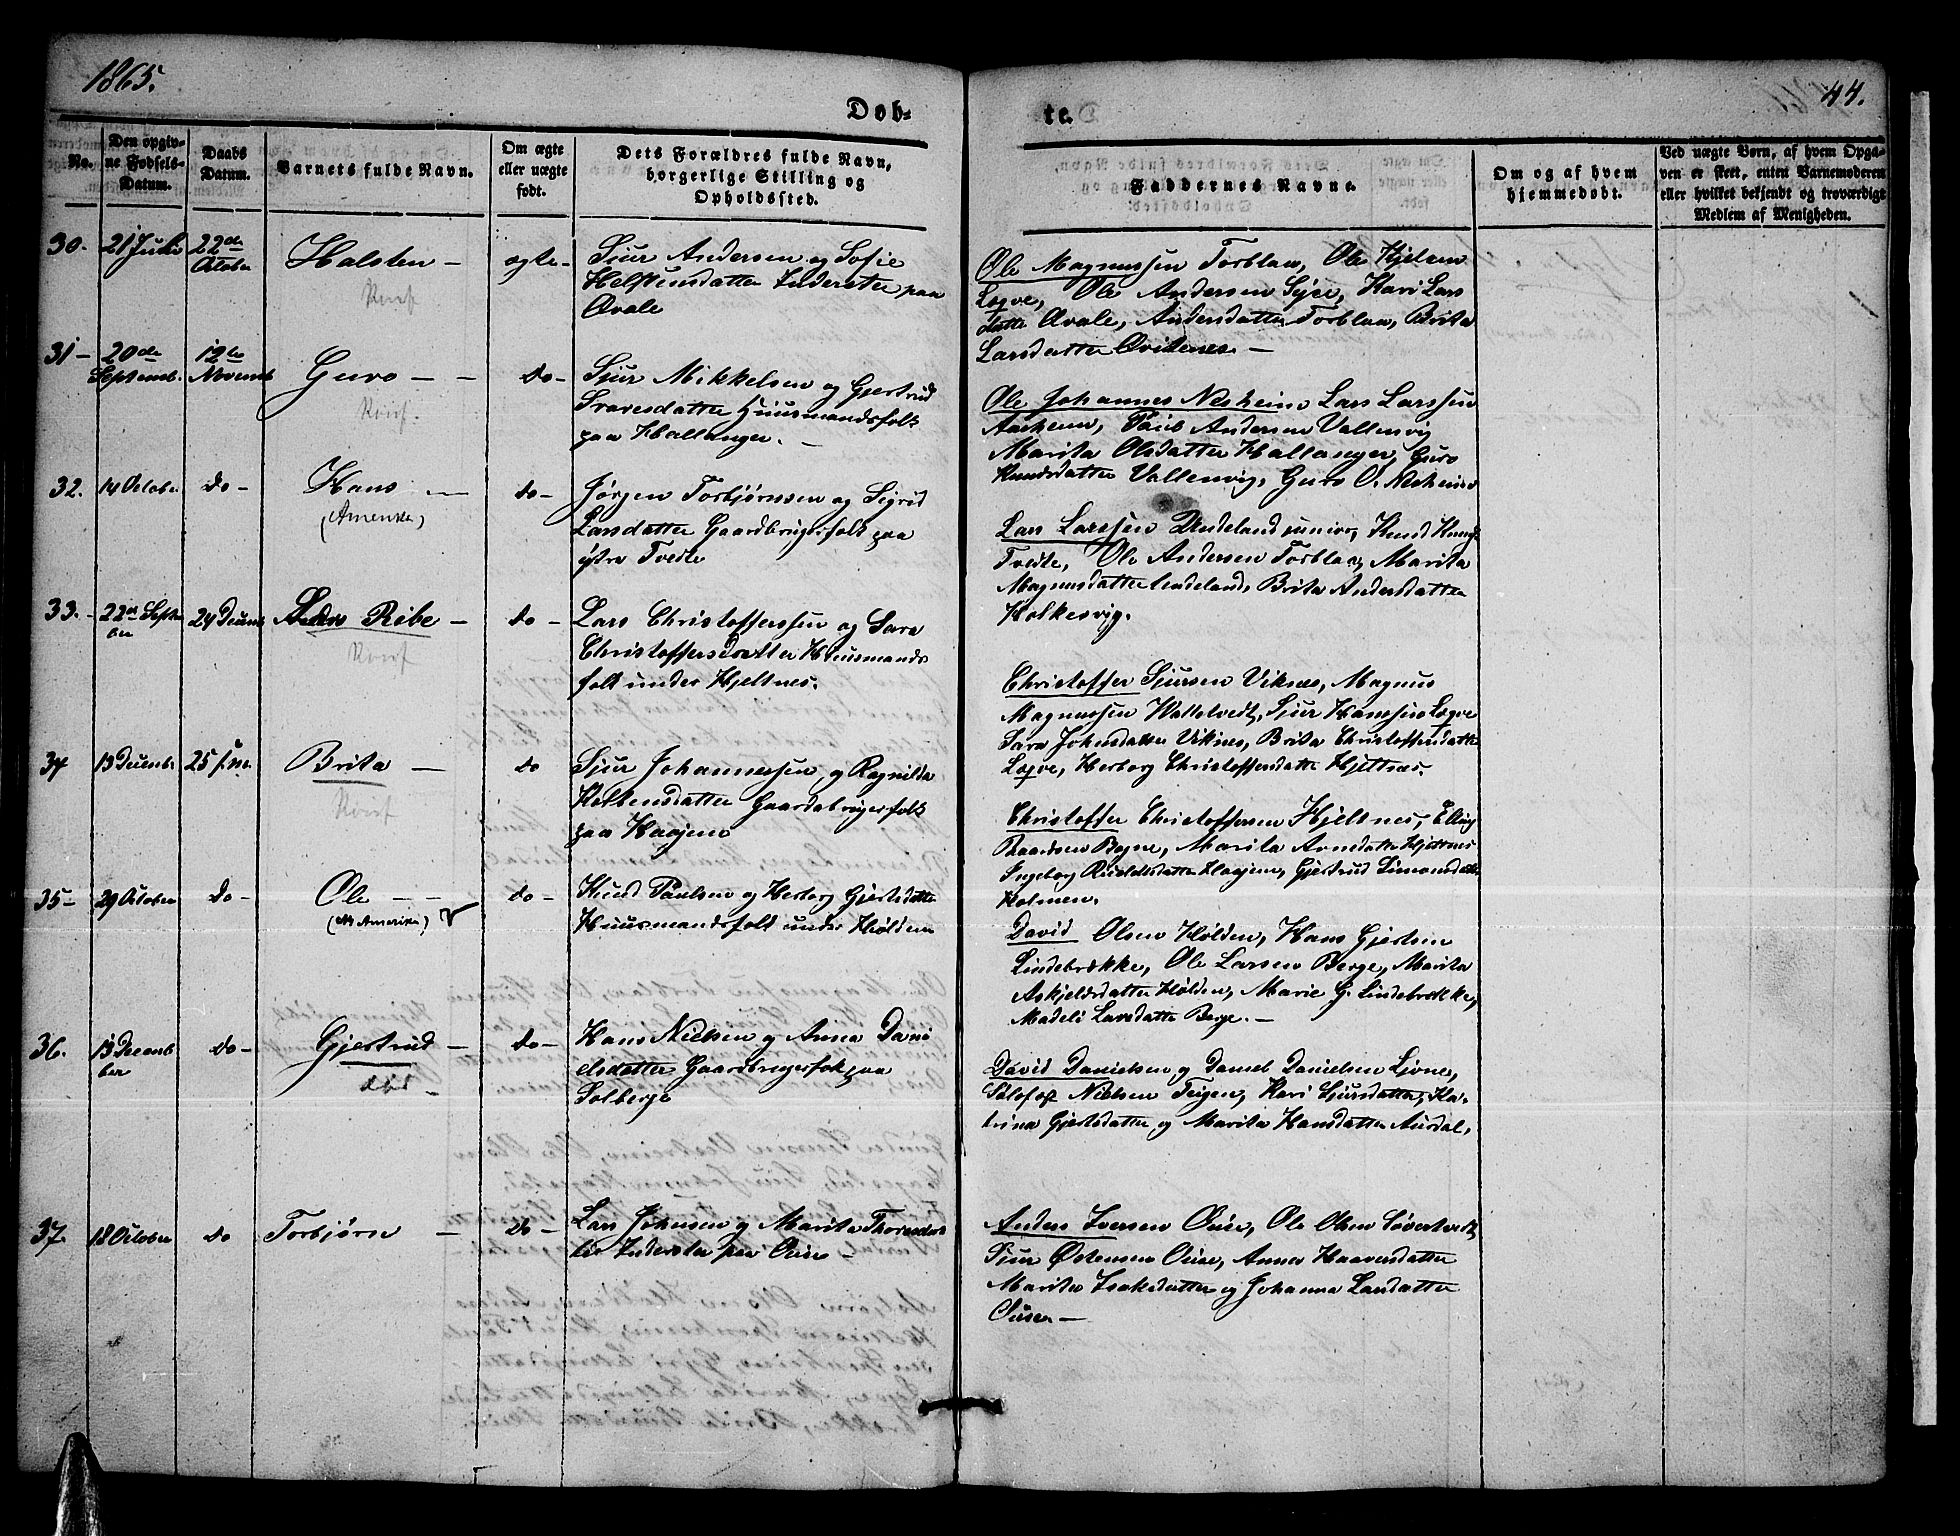 1865.
44.
Døb-
te.
No.
Den opgiv-
ne Fødsels-
Datum.
Daabs
Datum.
Barnets fulde Navn.
Om ægte
eller uægte
født.
Dets Forældres fulde Navn,
borgerlige Stilling og
Opholdssted.
Faddernes Navne.
Om og af hvem
hjemmedøbt.
Ved uægte Børn, af hvem Opga-
ven er skeet, enten Barnemoderen
eller hvilket bekjendt og troværdigt
Medlem af Menigheden.
30.
21 Juli
22de
October
Halsten -
ægte -
Sjur Andersen og Sofie
Inderster paa
Qvale
Ole Magnussen Torblaa, Ole
Ole Andersen Kari Lars
datter Qvale, Andersdatter Torblaa, Brita
Larsdatter Qvitenes -
31 -
20de
Septemb.
12te
Novemb
Guro - -
do -
Sjur Mikkelsen og Gjertrud
Huusmandsfolk
paa Hallanger. -
Ole Johannes Nesheim Lars Larssen
Andersen Vallevig
Marita Olsdatter Hallanger, Guro
Knudsdatter Vallevig, Guro O. Nesheim
32.
14 October
do -
Hans -
(Amerika)
do -
Jørgen Torbjørnsen og Sigrid
Larsdatter Gaardbrugerfolk paa
ystre Tvedte
Lars Larssen Undeland junior, Knud
Tvedte, Ole Andersen Torblaa, Marita
Magnusdatter Undeland, Brita Andersdatter
Holkesvig.
33. -
22de Septem
ber
24 Decemb
Ribe -
do -
Lars Christoffersen og Sara
Christoffersdatter Huusmands
folk under Hjeltnes.
Christoffer Sjursen Viknes, Magnus
Magnussen Sjur Hanssen
Sara Johnsdatter Viknes, Brita Christoffersdatter
Herborg Christoffersdatter Hjeltnes.
34
13 Decembr
Brita -
do
Sjur Johannessen og Ragnilda
Gaardbrugerfolk
paa Haajem
Christoffer Christoffersen Hjeltnes, Elling
Baardsen Marita Arnedatter Hjeltnes
Ingeborg Haajem, Gjertrud Simonsdatter
Holmen.
35 -
29 October
do -
Ole - -
(N. Amerika)
do -
Knud Paulsen og Herborg Gjertsdatter
Huusmandsfolk under Hølden
David Olsen Hølden, Hans Gjertsen
Lindebrække, Ole Larsen Berge, Marita
Askjelsdatter Hølden, Marie G. Lindebrække,
Madeli Larsdatter Berge. -
36.
13 Decem
ber
do -
Gjertrud -
død -
do -
Hans Nielsen og Anna Dani
elsdatter Gaardbrugerfolk paa
Solberge
David Danielsen og Daniel Danielsen Lione,
Nielsen Teigen, Kari Sjursdatter, Ka-
trina Gjertsdatter og Marita Hansdatter Aurdal,
37.
18 October
do
Torbjørn -
do -
Lars Johnsen og Marita
Inderster paa
Anders Iversen Ouse, Ole Olsen
Sjur Østensen Ouse, Anna Haaversdatter
Marita Isaksdatter og Johanna Larsdatter
Ouse -